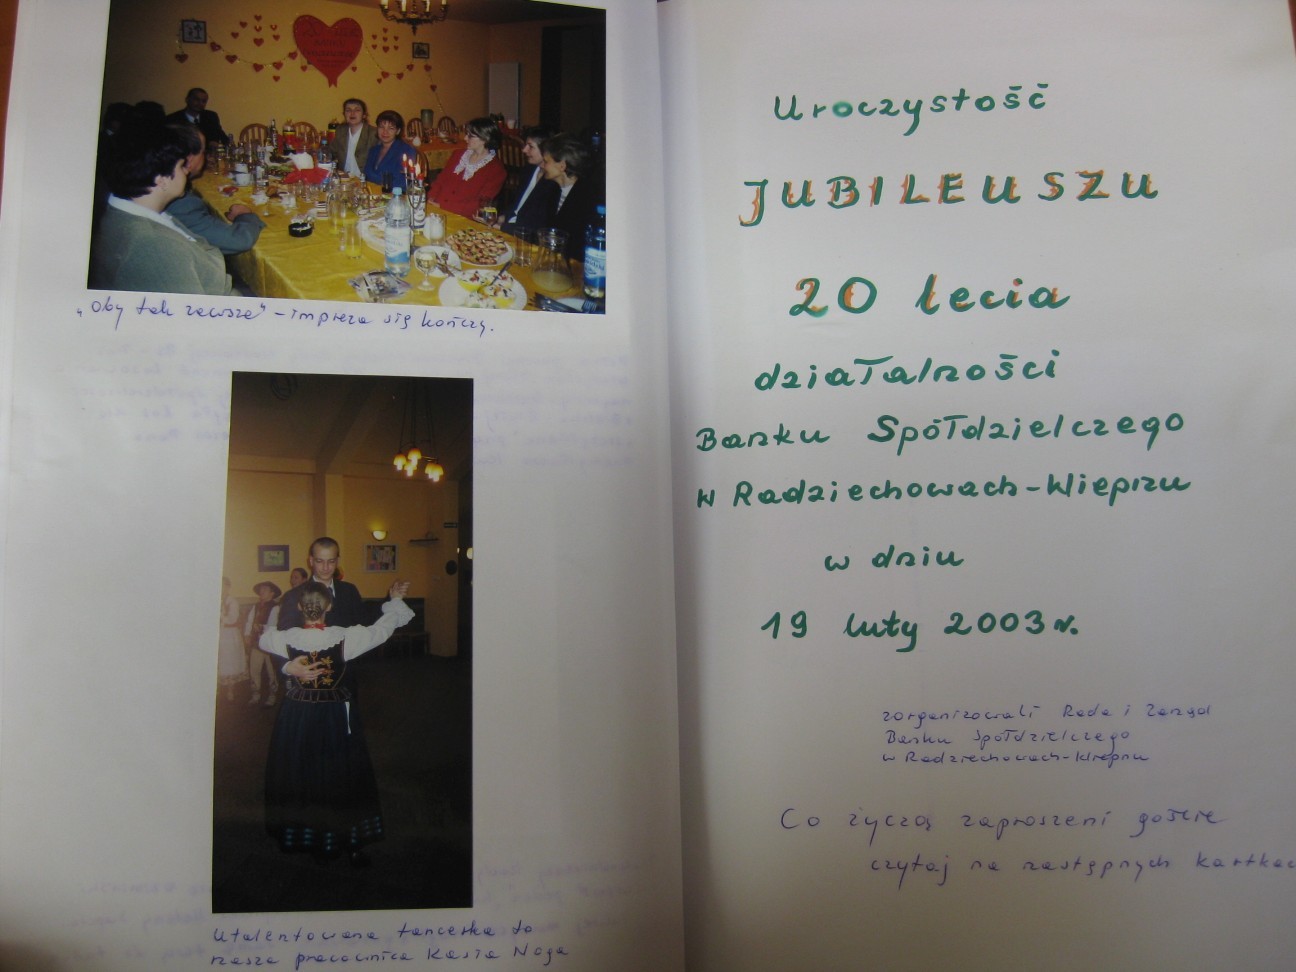 „Oby tak zawsze” – impreza się kończy.
Utalentowana tancerka to
nasza pracownica Kasia Noga
Uroczystość
JUBILEUSZU
20 lecia
działalności
Banku Spółdzielczego
w Radziechowach-Wieprzu
w dniu
19 luty 2003 r.
zorganizowali Rada i Zarząd
Banku Spółdzielczego
w Radziechowach-Wieprzu
Co życzą zaproszeni goście
czytaj na następnych kartkac